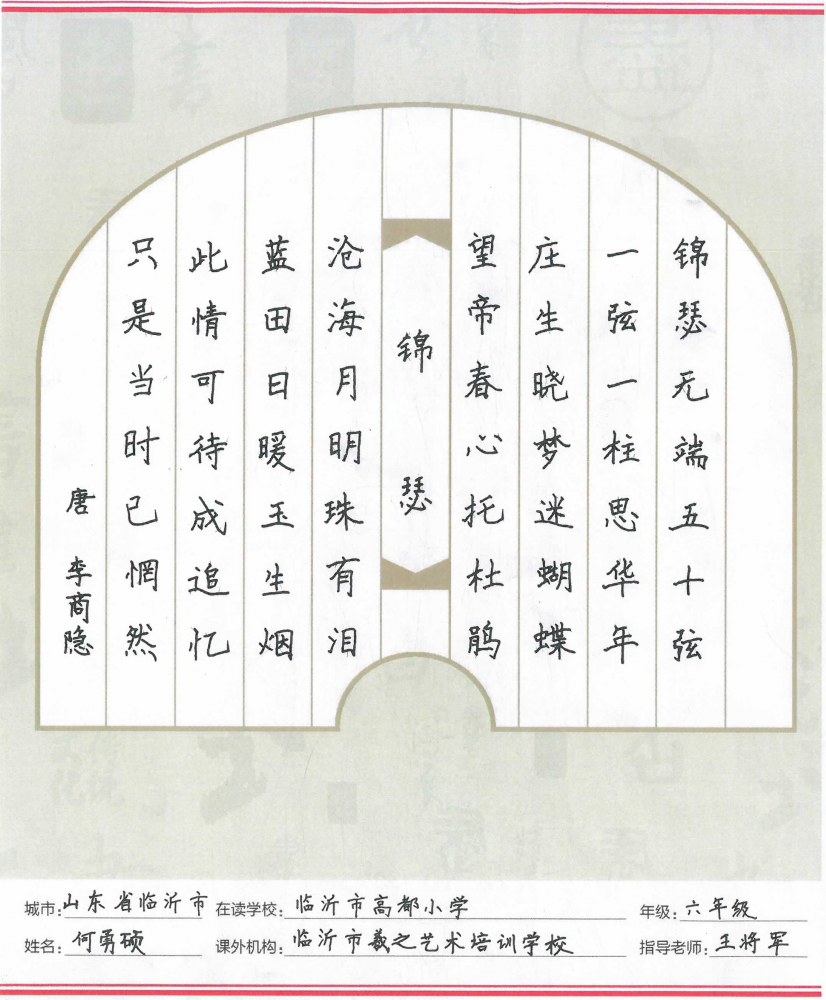 锦瑟无端五十弦
一弦一柱思华年
庄生晓梦迷蝴蝶
望帝春心托杜鹃
锦瑟
沧海月明珠有泪
蓝田日暖玉生烟
此情可待成追忆
只是当时已惘然
唐 李商隐
城市:山东省临沂市 在读学校:临沂市高都小学 年级:六年级
姓名:何勇硕 课外机构:临沂市羲之艺术培训学校 指导老师:王将军